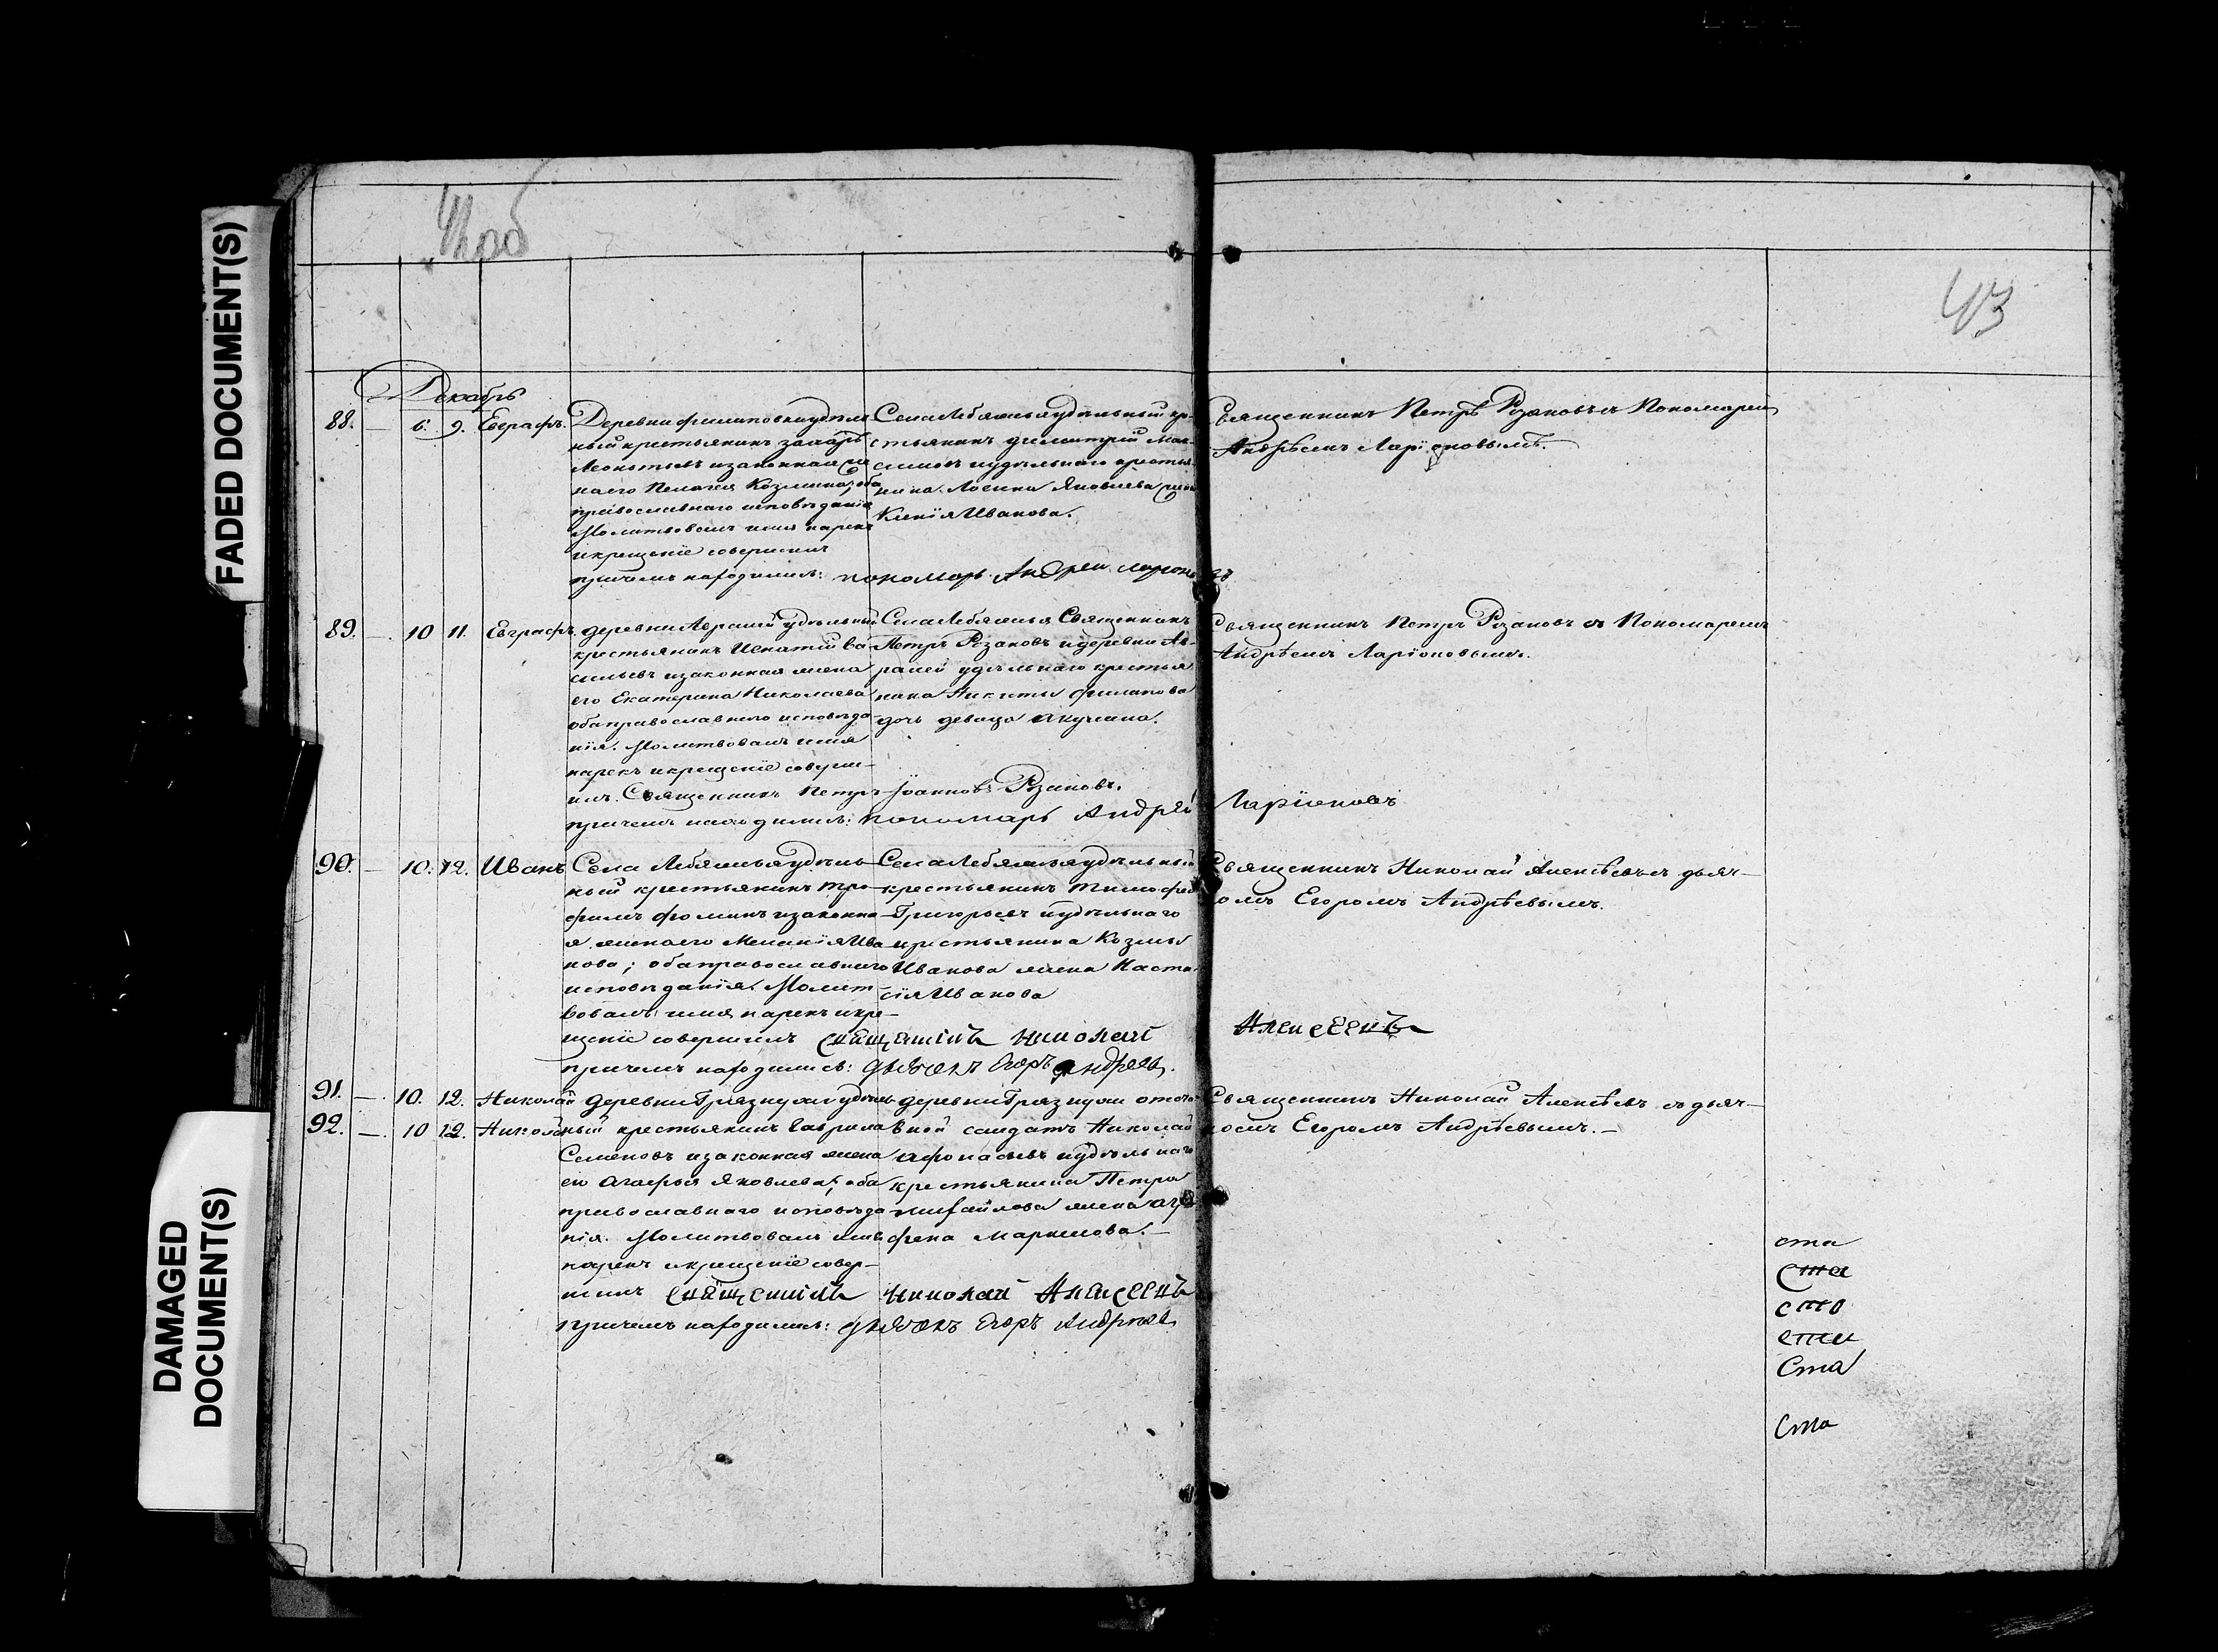 FADED DOCUMENT(S)
DAMAGED
DOCUMENT(S)
43
Декабрь
88. — 6. 9. Евграфъ.
Деревни Филиповки удѣль
ный крестьянинъ Захаръ
Леонтьевъ и законная же
на его Пелагея Козмина; оба
православнаго исповѣданія
Молитвовалъ имя нарекъ
и крещеніе совершилъ
при чемъ находились: пономарь Андрей Ларионовъ
Села Лебяжья удѣльный кре
стьянинъ Димитрій Мак
симовъ и удѣльнаго крестья
нина Яковлева жена
Ксенія Иванова.
Священникъ Петръ Рѣзановъ съ Пономаремъ
Андрѣемъ Ларіоновымъ.
89. — 10 11. Евграфъ.
деревни Авралей удѣльный
крестьянинъ Игнатій Ва
сильевъ и законная жена
его Екатерина Николаева
оба православнаго исповѣда
нія. Молитвовалъ имя
нарекъ и крещеніе совер
шилъ. Священникъ Петръ Іоанновъ Рѣзановъ.
при чемъ находились: пономарь Андрей Ларіоновъ
Села Лебяжья Священникъ
Петръ Рѣзановъ и деревни Ав
ралей удѣльнаго крестья
нина Никиты Филипова
дочь девица Акулина.
Священникъ Петръ Рѣзановъ съ Пономаремъ
Андрѣемъ Ларіоновымъ.
90. — 10. 12. Иванъ
Села Лебяжья удѣль
ный крестьянинъ Тро
фимъ Фоминъ и законна
я жена его Меланія Ива
нова; оба православнаго
исповѣданія. Молит
вовалъ имя нарекъ и кре
щеніе совершилъ священникъ Николай Алексеевъ
при чемъ находились: дьячекъ Егоръ Андреевъ.
Села Лебяжья удѣльный
крестьянинъ Тимофей
Григорьевъ и удѣльнаго
крестьянина Козмы
Иванова жена Наста
сія Иванова
Священникъ Николай Алексѣевъ съ дьяч
комъ Егоромъ Андрѣевымъ.
91. — 10. 12. Николай
92. — 10 12. Николай
деревни Грязнухи удѣль
ный крестьянинъ Гаврила
Семеновъ и законная жена
его Агафья Яковлева; оба
православнаго исповѣда
нія. Молитвовалъ имя
нарекъ и крещеніе совер
шилъ священникъ Николай Алексеевъ
при чемъ находились: дьячекъ Егоръ Андреевъ
деревни Грязнухи
солдатъ Николай
Афонасьевъ и удѣльнаго
крестьянина Петра
Михайлова жена Агра
фена Маркелова.
Священникъ Николай Алексѣевъ съ дьяч
комъ Егоромъ Андрѣевымъ. —
ста
ста
сто
сти
Ста
Ста